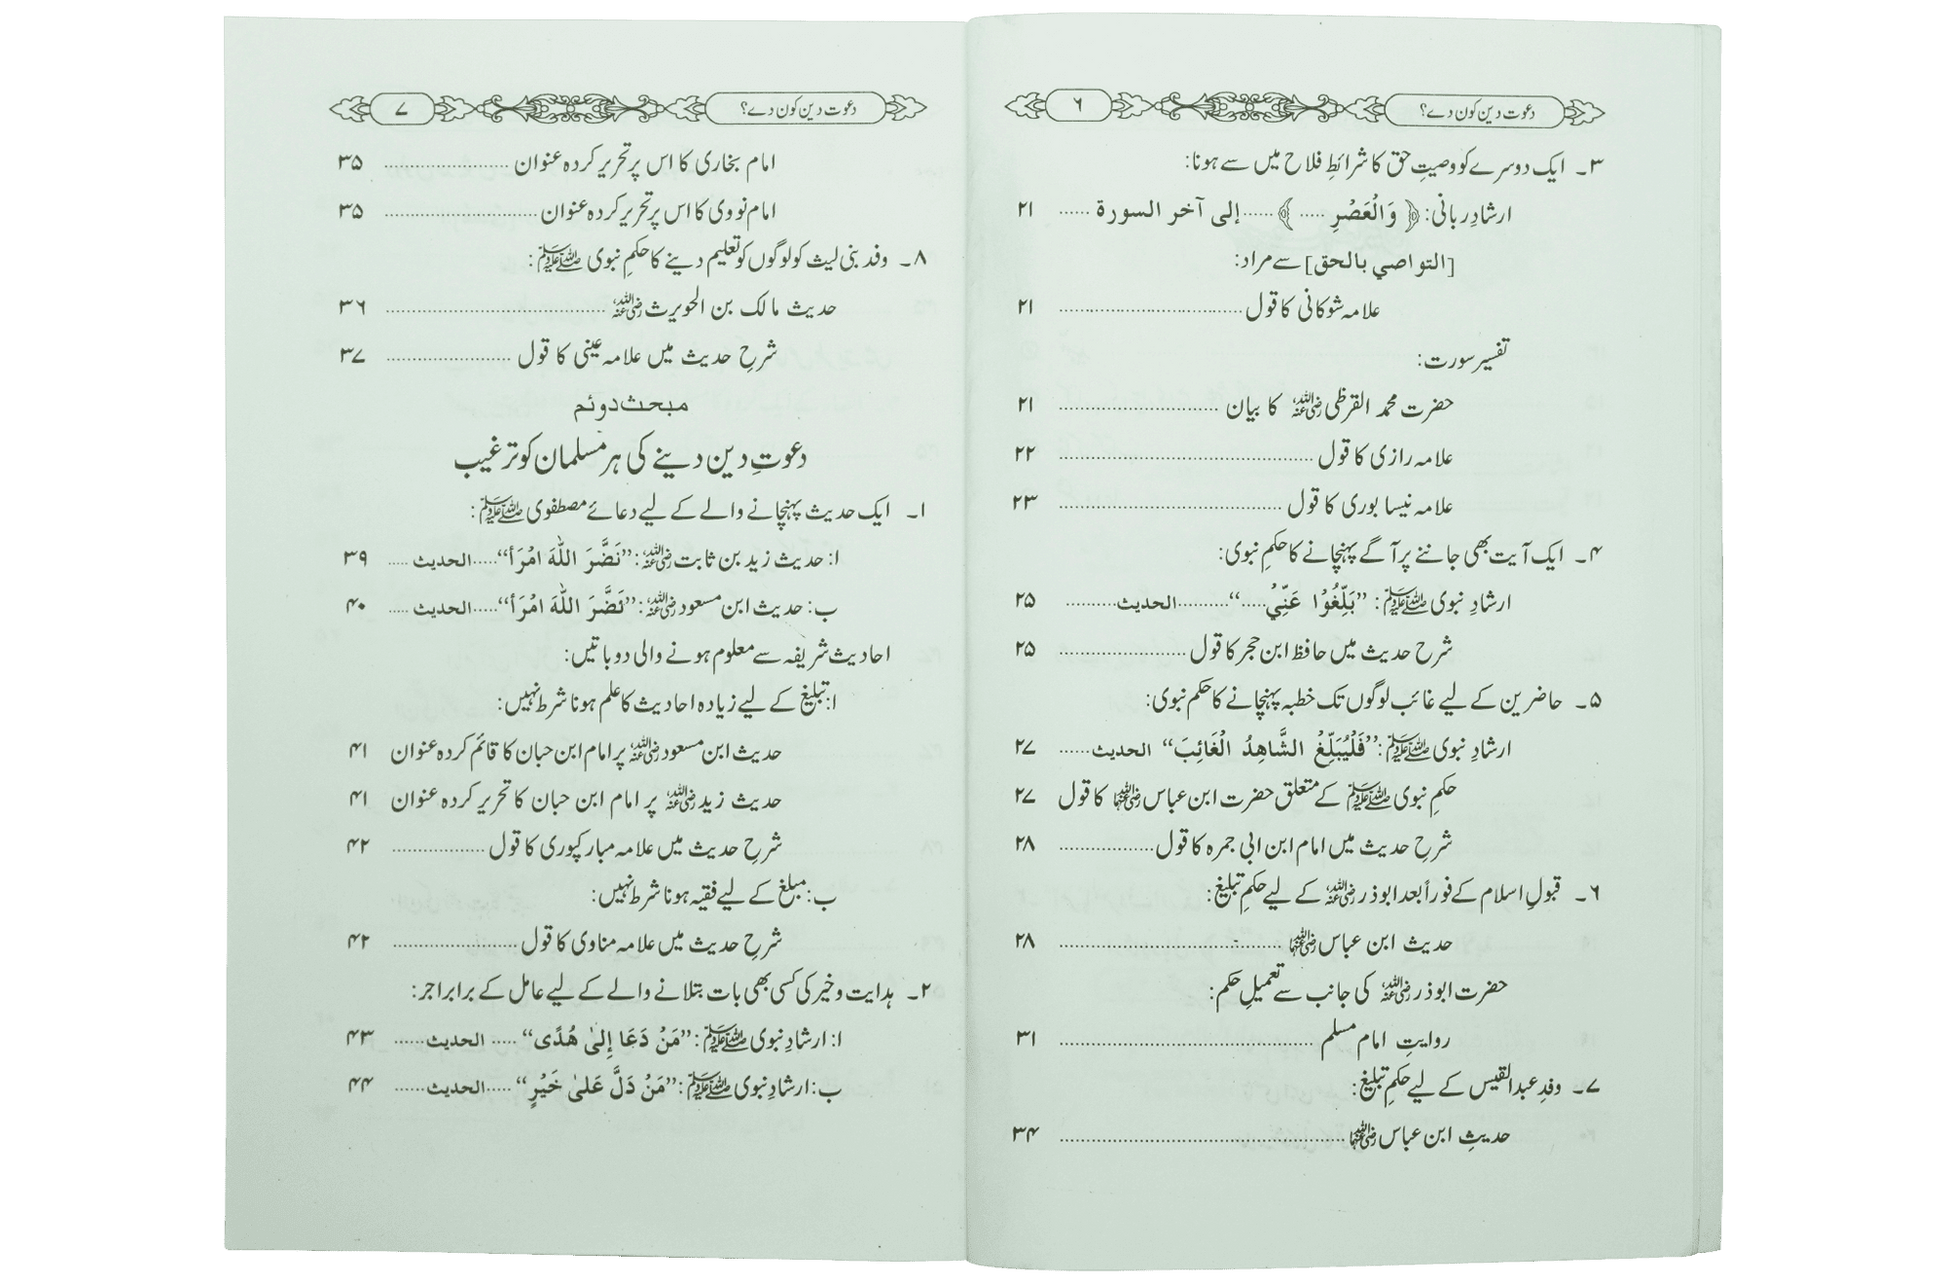 دعوت دین کون دے؟ ۶
۳۔ ایک دوسرے کو وصیتِ حق کا شرائطِ فلاح میں سے ہونا:
ارشادِ ربانی: ﴿ وَالْعَصْرِ ..... ﴾ ...... إلى آخر السورة ...... ۲۱
[التواصي بالحق] سے مراد:
علامہ شوکانی کا قول ...... ۲۱
تفسیر سورت:
حضرت محمد القرظی رضی اللہ عنہ کا بیان ...... ۲۱
علامہ رازی کا قول ...... ۲۲
علامہ نیسا بوری کا قول ...... ۲۳
۴۔ ایک آیت بھی جاننے پر آگے پہنچانے کا حکمِ نبوی:
ارشادِ نبوی ﷺ: ”بَلِّغُوْا عَنِّيْ.....“ .......... الحدیث .......... ۲۵
شرح حدیث میں حافظ ابن حجر کا قول ...... ۲۵
۵۔ حاضرین کے لیے غائب لوگوں تک خطبہ پہنچانے کا حکم نبوی:
ارشادِ نبوی ﷺ: ”فَلْيُبَلِّغْ الشَّاهِدُ الْغَائِبَ“ الحدیث ...... ۲۷
حکمِ نبوی ﷺ کے متعلق حضرت ابن عباس رضی اللہ عنہما کا قول ۲۷
شرح حدیث میں امام ابن ابی جمرہ کا قول ...... ۲۸
۶۔ قبولِ اسلام کے فوراً بعد ابوذر رضی اللہ عنہ کے لیے حکمِ تبلیغ:
حدیث ابن عباس رضی اللہ عنہما ...... ۲۸
حضرت ابوذر رضی اللہ عنہ کی جانب سے تعمیلِ حکم:
روایتِ امام مسلم ...... ۳۱
۷۔ وفدِ عبدالقیس کے لیے حکمِ تبلیغ:
حدیثِ ابن عباس رضی اللہ عنہما ...... ۳۴
دعوت دین کون دے؟ ۷
امام بخاری کا اس پر تحریر کردہ عنوان ...... ۳۵
امام نووی کا اس پر تحریر کردہ عنوان ...... ۳۵
۸۔ وفد بنی لیث کو لوگوں کو تعلیم دینے کا حکمِ نبوی ﷺ:
حدیث مالک بن الحویرث رضی اللہ عنہ ...... ۳۶
شرحِ حدیث میں علامہ عینی کا قول ...... ۳۷
مبحث دوئم
دعوتِ دین دینے کی ہر مسلمان کو ترغیب
۱۔ ایک حدیث پہنچانے والے کے لیے دعائے مصطفوی ﷺ:
ا: حدیث زید بن ثابت رضی اللہ عنہ: ”نَضَّرَ اللّٰهَ امْرَأ“ ..... الحدیث ..... ۳۹
ب: حدیث ابن مسعود رضی اللہ عنہ: ”نَضَّرَ اللّٰهَ امْرَأ“ ..... الحدیث ..... ۴۰
احادیث شریفہ سے معلوم ہونے والی دو باتیں:
ا: تبلیغ کے لیے زیادہ احادیث کا علم ہونا شرط نہیں:
حدیث ابن مسعود رضی اللہ عنہ پر امام ابن حبان کا قائم کردہ عنوان ۴۱
حدیث زید رضی اللہ عنہ پر امام ابن حبان کا تحریر کردہ عنوان ۴۱
شرحِ حدیث میں علامہ مبارکپوری کا قول ...... ۴۲
ب: مبلغ کے لیے فقیہ ہونا شرط نہیں:
شرحِ حدیث میں علامہ مناوی کا قول ...... ۴۲
۲۔ ہدایت و خیر کی کسی بھی بات بتلانے والے کے لیے عامل کے برابر اجر:
ا: ارشادِ نبوی ﷺ: ”مَنْ دَعَا إِلىٰ هُدًى“ ..... الحدیث ...... ۴۳
ب: ارشادِ نبوی ﷺ: ”مَنْ دَلَّ عَلىٰ خَيْرٍ“ ..... الحدیث ...... ۴۴